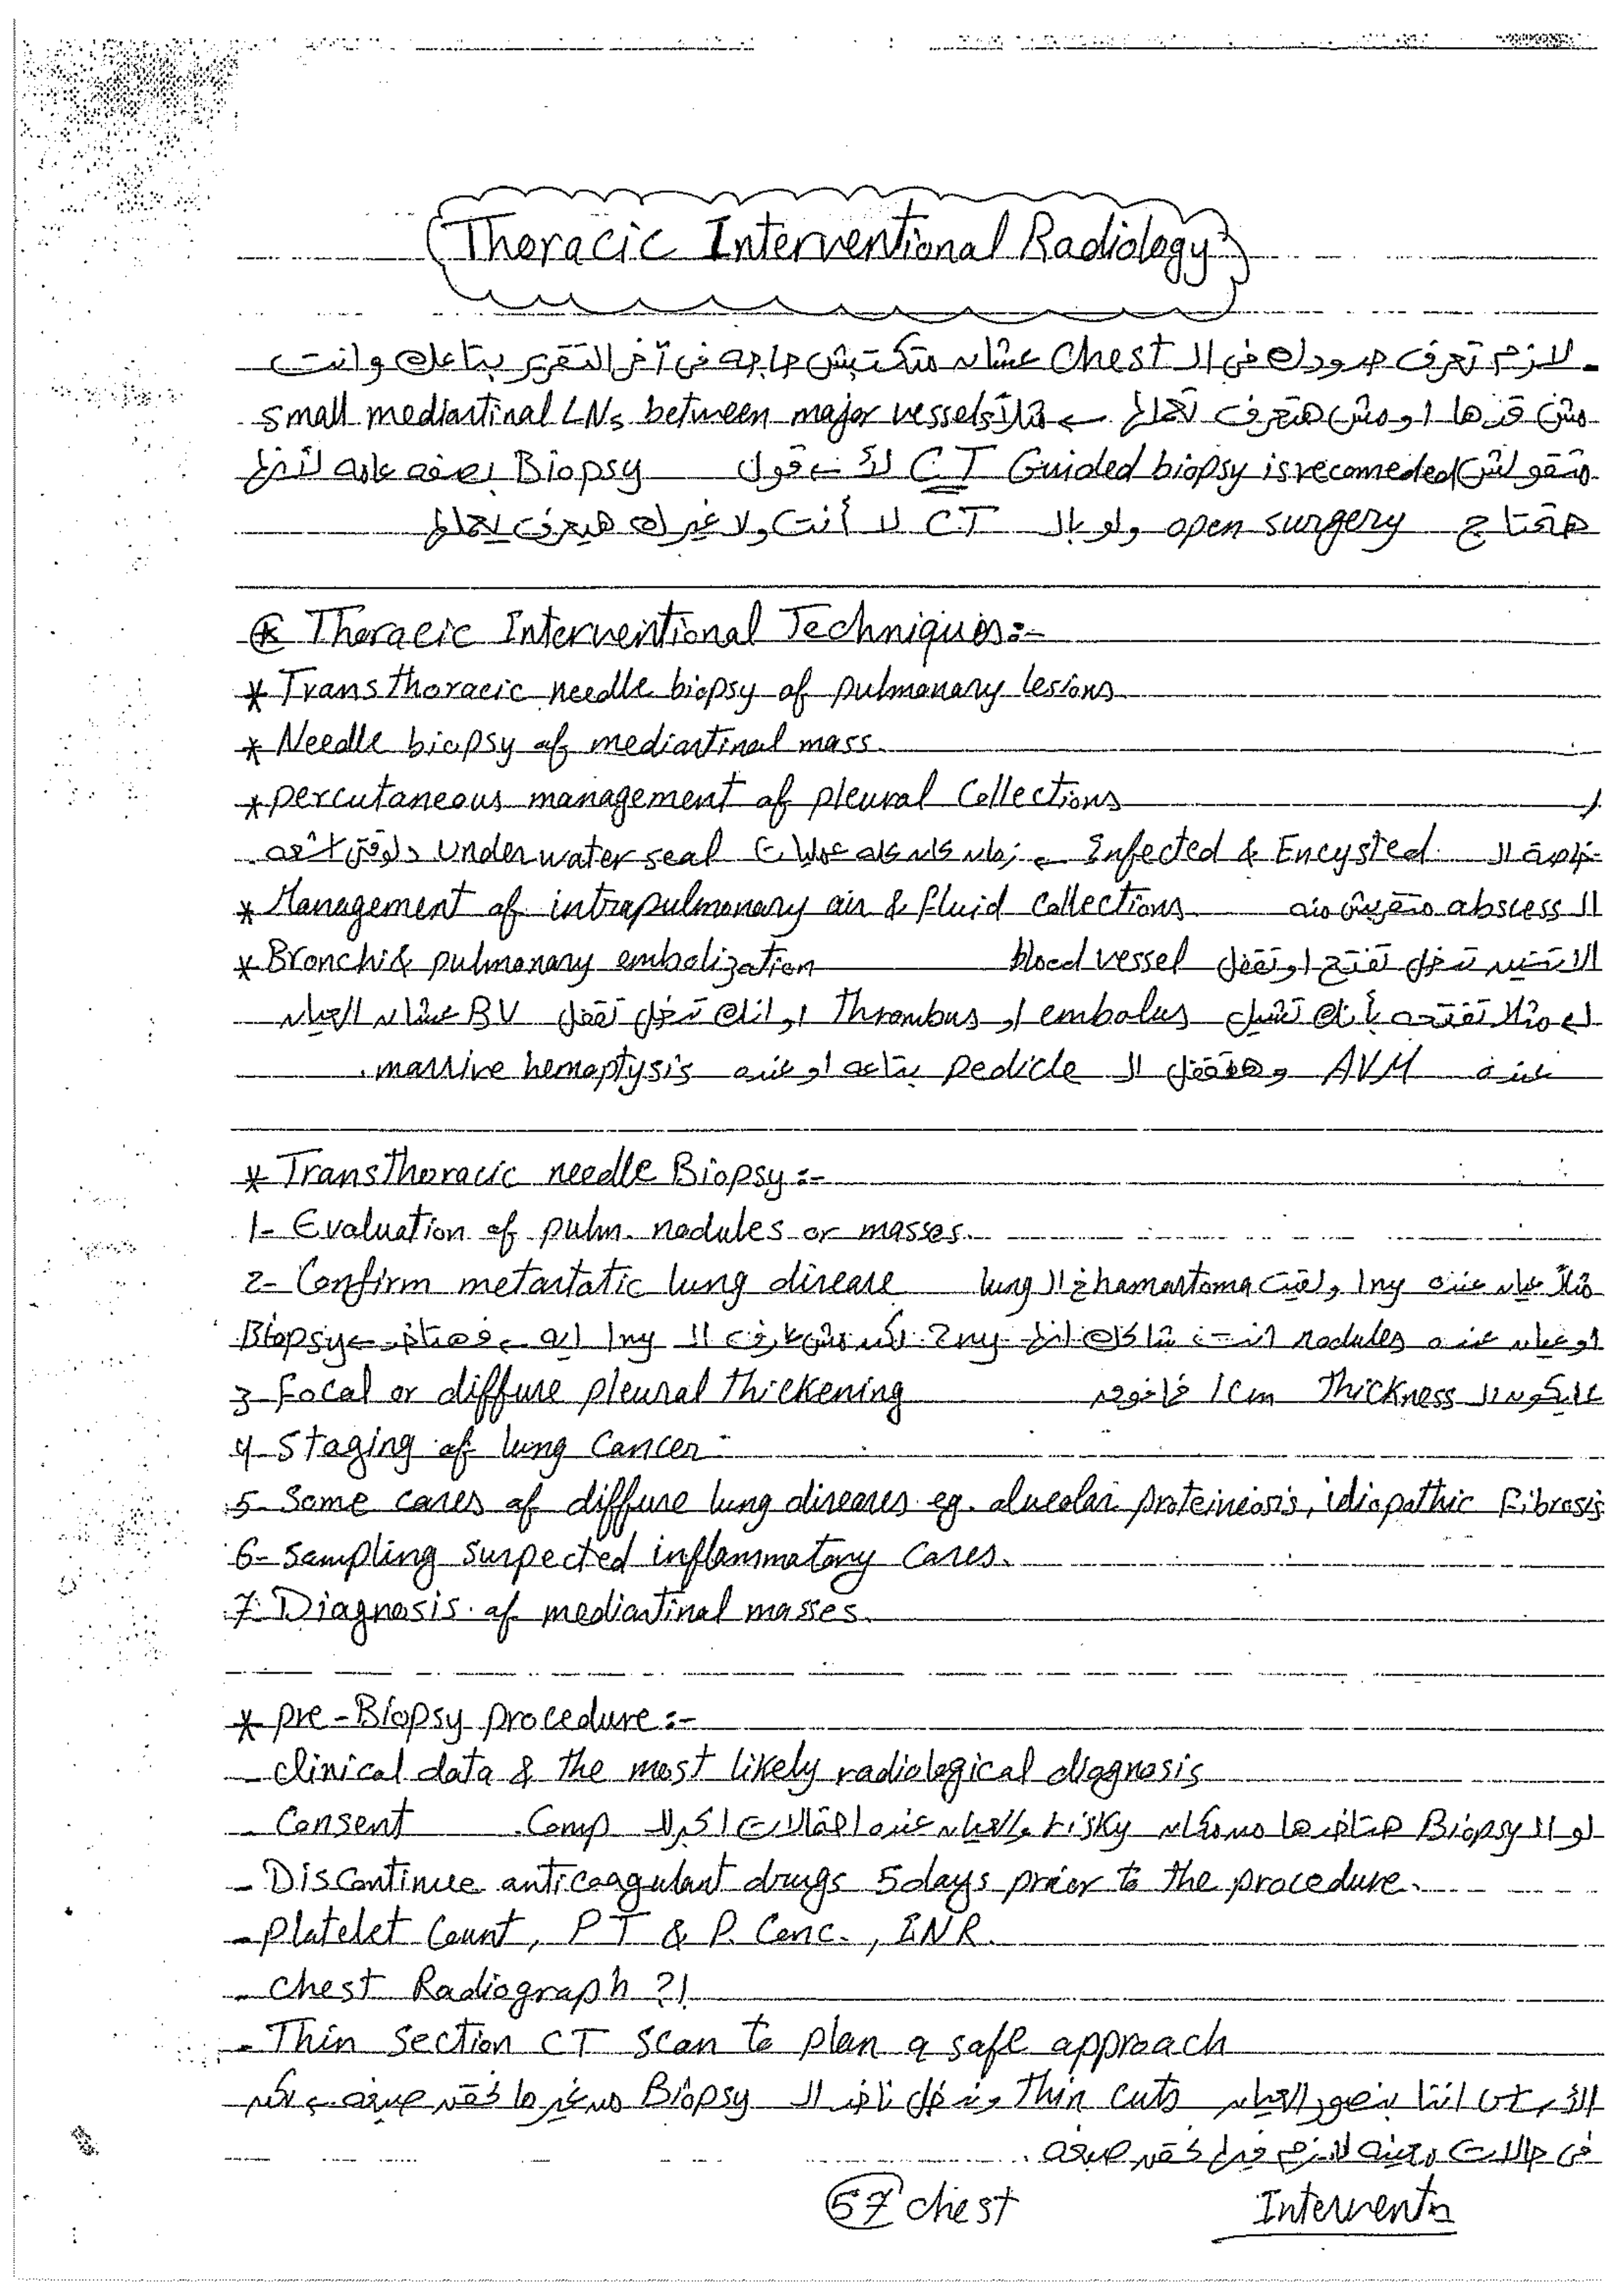 Thoracic Interventional Radiology
- لازم تعرف حدودك فى الـ Chest عشان متكتبش حاجه فى آخر التقرير بتاعك وانت
مش قدها او مش هتعرف تعملها ← مثلاً small mediastinal LNs between major vessels
متقولش CT Guided biopsy is recomeded لأ ← قول Biopsy بصفه عامه لأنها
هتحتاج open surgery ولو بالـ CT لا أنت ولا غيرك هيعرف يعملها
* Thoracic Interventional Techniques:-
* Transthoracic needle biopsy of pulmonary lesions
* Needle biopsy of mediastinal mass.
* percutaneous management of pleural Collections
خاصة الـ Infected & Encysted ← زمان كان كله عمليات underwater seal دلوقتى اشعه
* Management of intrapulmonary air & fluid Collections الـ abscess متقربش منه
* Bronchi & pulmonary embolization الاتنين تدخل تفتح او تقفل blood vessel
مثلا تفتحه بأنك تشيل embolus او Thrombus او انك تدخل تقفل BV عشان العيان
عنده AVM وهتقفل الـ pedicle بتاعه او عنده massive hemoptysis.
* Transthoracic needle Biopsy:-
1- Evaluation of pulm. nodules or masses.
2- Confirm metastatic lung disease مثلاً عيان عنده 1ry ولقيت hamartoma فى الـ lung
او عيان عنده nodules انت شاكك انها 2ry لكن مش عارف الـ 1ry ايه ← فهتاخد ← Biopsy
3- Focal or diffuse pleural thickening لما يكون الـ Thickness 1cm فما فوق
4- Staging of lung Cancer
5- Some cases of diffuse lung diseases eg. alveolar proteineosis, idiopathic Fibrosis
6- Sampling suspected inflammatory Cases.
7- Diagnosis of mediastinal masses.
* pre-Biopsy procedure:-
- clinical data & the most likely radiological diagnosis
- Consent لو الـ Biopsy هتاخدها من مكان risky والعيان عنده احتمالات اكبر للـ Comp.
- Discontinue anticoagulant drugs 5 days prior to the procedure.
- Platelet Count, PT & P. Conc., INR.
- Chest Radiograph ?!
- Thin section CT scan to plan a safe approach
اننا بنصور العيان Thin cuts وندخل ناخد الـ Biopsy من غير ما نحقن صبغه ← لكن
فى حالات معينه لازم فيها نحقن صبغه.
57 chest
Interventn